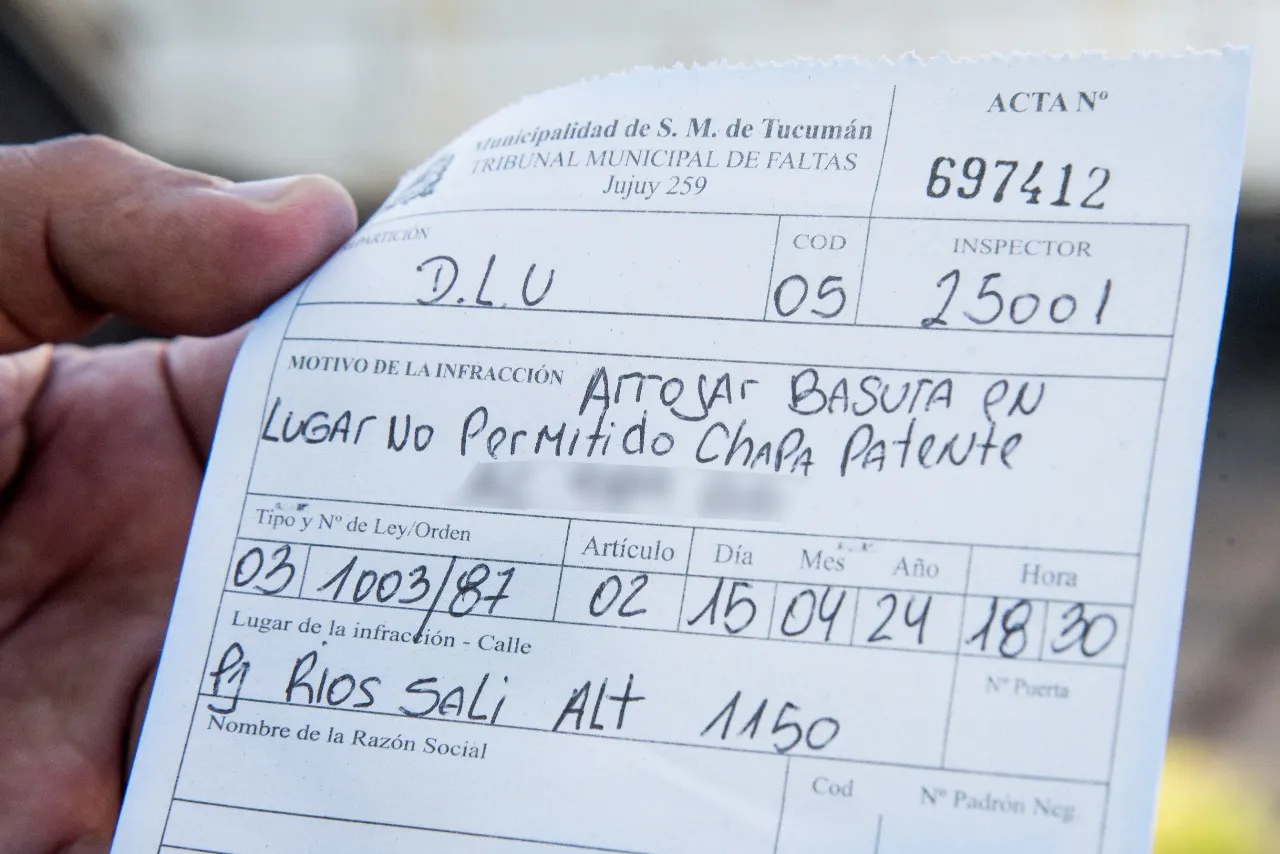 Municipalidad de S. M. de Tucumán
TRIBUNAL MUNICIPAL DE FALTAS
Jujuy 259
ACTA Nº
697412
REPARTICIÓN
D.L.U
COD
05
INSPECTOR
25001
MOTIVO DE LA INFRACCIÓN Arrojar BASUrA eN
LUGAr No PerMitido ChaPA PAteNte
Tipo y Nº de Ley/Orden
03 1003/87
Artículo
02
Día Mes Año
15 04 24
Hora
18 30
Lugar de la infracción - Calle
Pj RIOS SALi ALt 1150
Nº Puerta
Nombre de la Razón Social
Cod
Nº Padrón Neg.